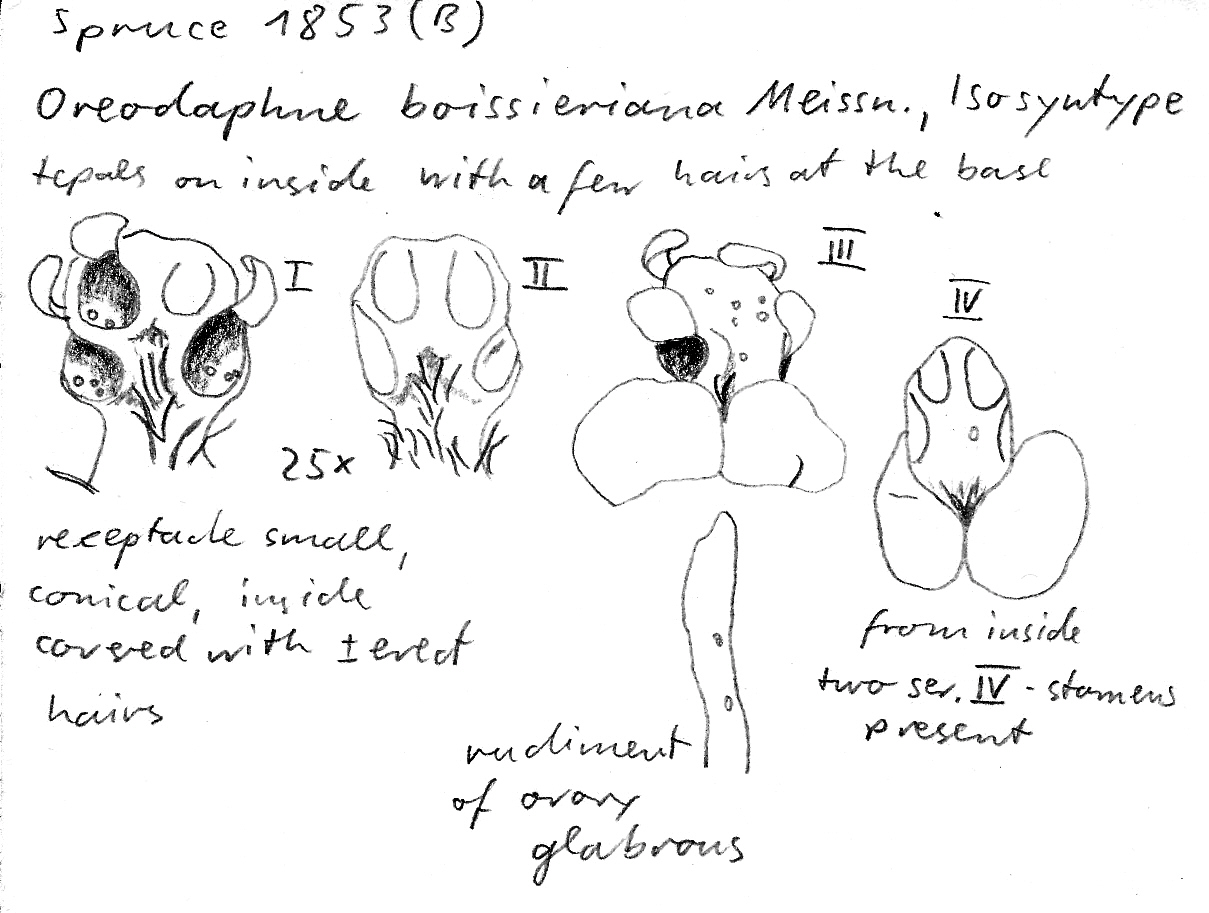 Spruce 1853 (B)
Oreodaphne boissieriana Meissn., Isosyntype
tepals on inside with a few hairs at the base
I
II
III
IV
25x
receptacle small,
conical, inside
covered with ± erect
hairs
from inside
two ser. IV - stamens
present
rudiment
of ovary
glabrous